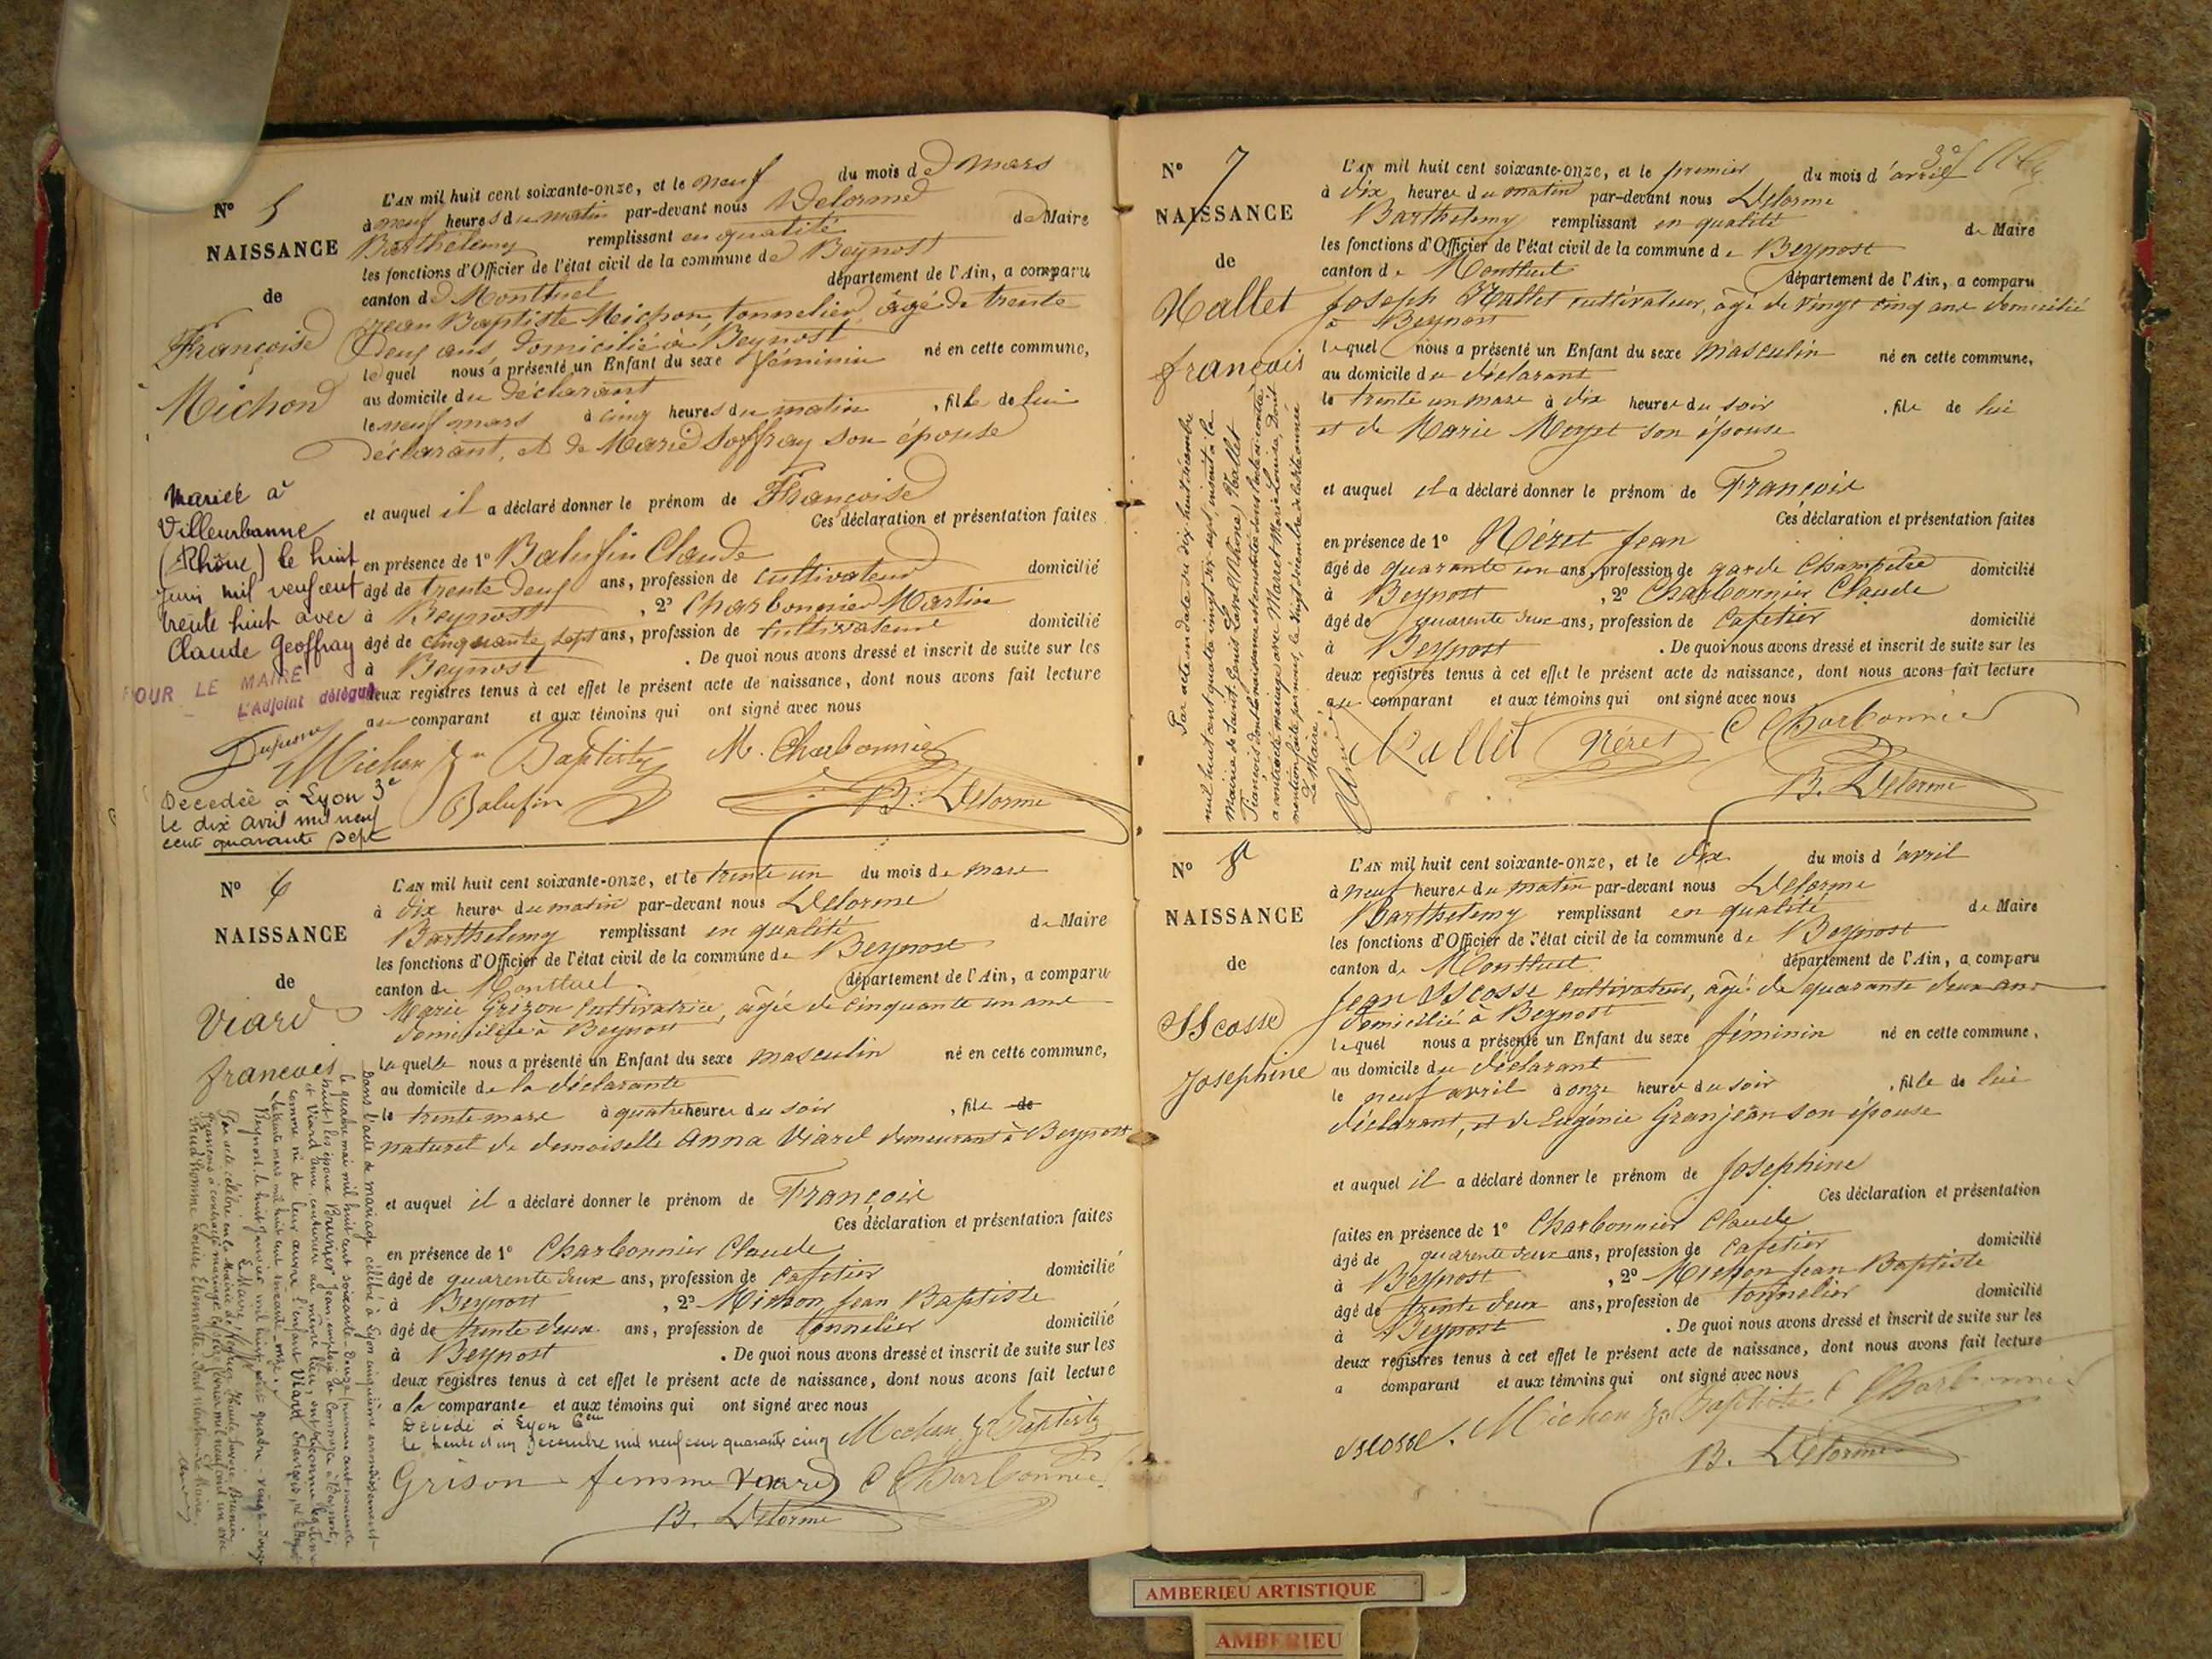 N° 5
NAISSANCE
de
Françoise
Michon
L'AN mil huit cent soixante-onze, et le neuf du mois de Mars
à neuf heures du matin par-devant nous Delorme
Barthélemy remplissant en qualité de Maire
les fonctions d'Officier de l'état civil de la commune de Beynost
canton de Montluel département de l'Ain, a comparu
Jean Baptiste Michon, tonnelier âgé de trente
deux ans, domicilié à Beynost
lequel nous a présenté un Enfant du sexe féminin né en cette commune,
au domicile du déclarant
le neuf mars à cinq heures du matin, fille de lui
déclarant, et de Marie Soffray son épouse
et auquel il a déclaré donner le prénom de Françoise
Ces déclaration et présentation faites
en présence de 1° Balufin Claude
âgé de trente deux ans, profession de cultivateur domicilié
à Beynost, 2° Charbonnier Martin
âgé de cinquante sept ans, profession de cultivateur domicilié
à Beynost. De quoi nous avons dressé et inscrit de suite sur les
deux registres tenus à cet effet le présent acte de naissance, dont nous avons fait lecture
au comparant et aux témoins qui ont signé avec nous
Mariée à
Villeurbanne
(Rhône) le huit
juin mil neuf cent
trente huit avec
Claude Geoffray
POUR LE MAIRE
L'Adjoint délégué
Michon Jn Baptiste M. Charbonnier
Balufin B. Delorme
Décédée à Lyon 3e
le dix avril mil neuf
cent quarante sept
N° 6
NAISSANCE
de
Viard
françois
L'AN mil huit cent soixante-onze, et le trente un du mois de mars
à dix heures du matin par-devant nous Delorme
Barthelemy remplissant en qualité de Maire
les fonctions d'Officier de l'état civil de la commune de Beynost
canton de Montluel département de l'Ain, a comparu
Marie Grizon cultivatrice, âgée de cinquante un ans
domiciliée à Beynost
laquelle nous a présenté un Enfant du sexe masculin né en cette commune,
au domicile de la déclarante
le trente mars à quatre heures du soir, fils de
naturel de demoiselle Anna Viard demeurant à Beynost
et auquel il a déclaré donner le prénom de François
Ces déclaration et présentation faites
en présence de 1° Charbonnier Claude
âgé de quarente deux ans, profession de Cafetier domicilié
à Beynost, 2° Michon Jean Baptiste
âgé de trente deux ans, profession de tonnelier domicilié
à Beynost. De quoi nous avons dressé et inscrit de suite sur les
deux registres tenus à cet effet le présent acte de naissance, dont nous avons fait lecture
a la comparante et aux témoins qui ont signé avec nous
Décédé à Lyon 6eme
le trente et un Décembre mil neuf cent quarante cinq
Michon Jn Baptiste
Grison femme Viard C Charbonnier
B. Delorme
Dans l'acte de mariage célébré à Lyon cinquième arrondissement
le quatre mai mil huit cent soixante-douze
N° 7
NAISSANCE
de
Nallet
françois
L'AN mil huit cent soixante-onze, et le premier du mois d'avril
à dix heures du matin par-devant nous Delorme
Barthelemy remplissant en qualité de Maire
les fonctions d'Officier de l'état civil de la commune de Beynost
canton de Montluel département de l'Ain, a comparu
Joseph Nallet cultivateur, âgé de vingt cinq ans domicilié
à Beynost
lequel nous a présenté un Enfant du sexe masculin né en cette commune,
au domicile du déclarant
le trente un mars à dix heures du soir, fils de lui
et de Marie Moget son épouse
et auquel il a déclaré donner le prénom de François
Ces déclaration et présentation faites
en présence de 1° Néret Jean
âgé de quarante un ans, profession de garde Champêtre domicilié
à Beynost, 2° Charbonnier Claude
âgé de quarente deux ans, profession de Cafetier domicilié
à Beynost. De quoi nous avons dressé et inscrit de suite sur les
deux registres tenus à cet effet le présent acte de naissance, dont nous avons fait lecture
au comparant et aux témoins qui ont signé avec nous
Nallet Néret C Charbonnier
B. Delorme
Par acte en date du dix-huit décembre
mil huit cent quatre vingt dix sept, inscrit à la
mairie de Saint Genis Laval (Rhône) Nallet
Le Maire,
N° 8
NAISSANCE
de
Sscosse
Josephine
L'AN mil huit cent soixante-onze, et le dix du mois d'avril
à neuf heures du matin par-devant nous Delorme
Barthelemy remplissant en qualité de Maire
les fonctions d'Officier de l'état civil de la commune de Beynost
canton de Montluel département de l'Ain, a comparu
Jean Sscosse cultivateur, âgé de quarante deux ans
domicilié à Beynost
lequel nous a présenté un Enfant du sexe féminin né en cette commune,
au domicile du déclarant
le neuf avril à onze heures du soir, fille de lui
déclarant, et de Eugénie Granjean son épouse
et auquel il a déclaré donner le prénom de Josephine
Ces déclaration et présentation
faites en présence de 1° Charbonnier Claude
âgé de quarente deux ans, profession de Cafetier domicilié
à Beynost, 2° Michon Jean Baptiste
âgé de trente deux ans, profession de tonnelier domicilié
à Beynost. De quoi nous avons dressé et inscrit de suite sur les
deux registres tenus à cet effet le présent acte de naissance, dont nous avons fait lecture
a comparant et aux témoins qui ont signé avec nous
Michon Jn Baptiste C Charbonnier
B. Delorme
AMBERIEU ARTISTIQUE
AMBERIEU